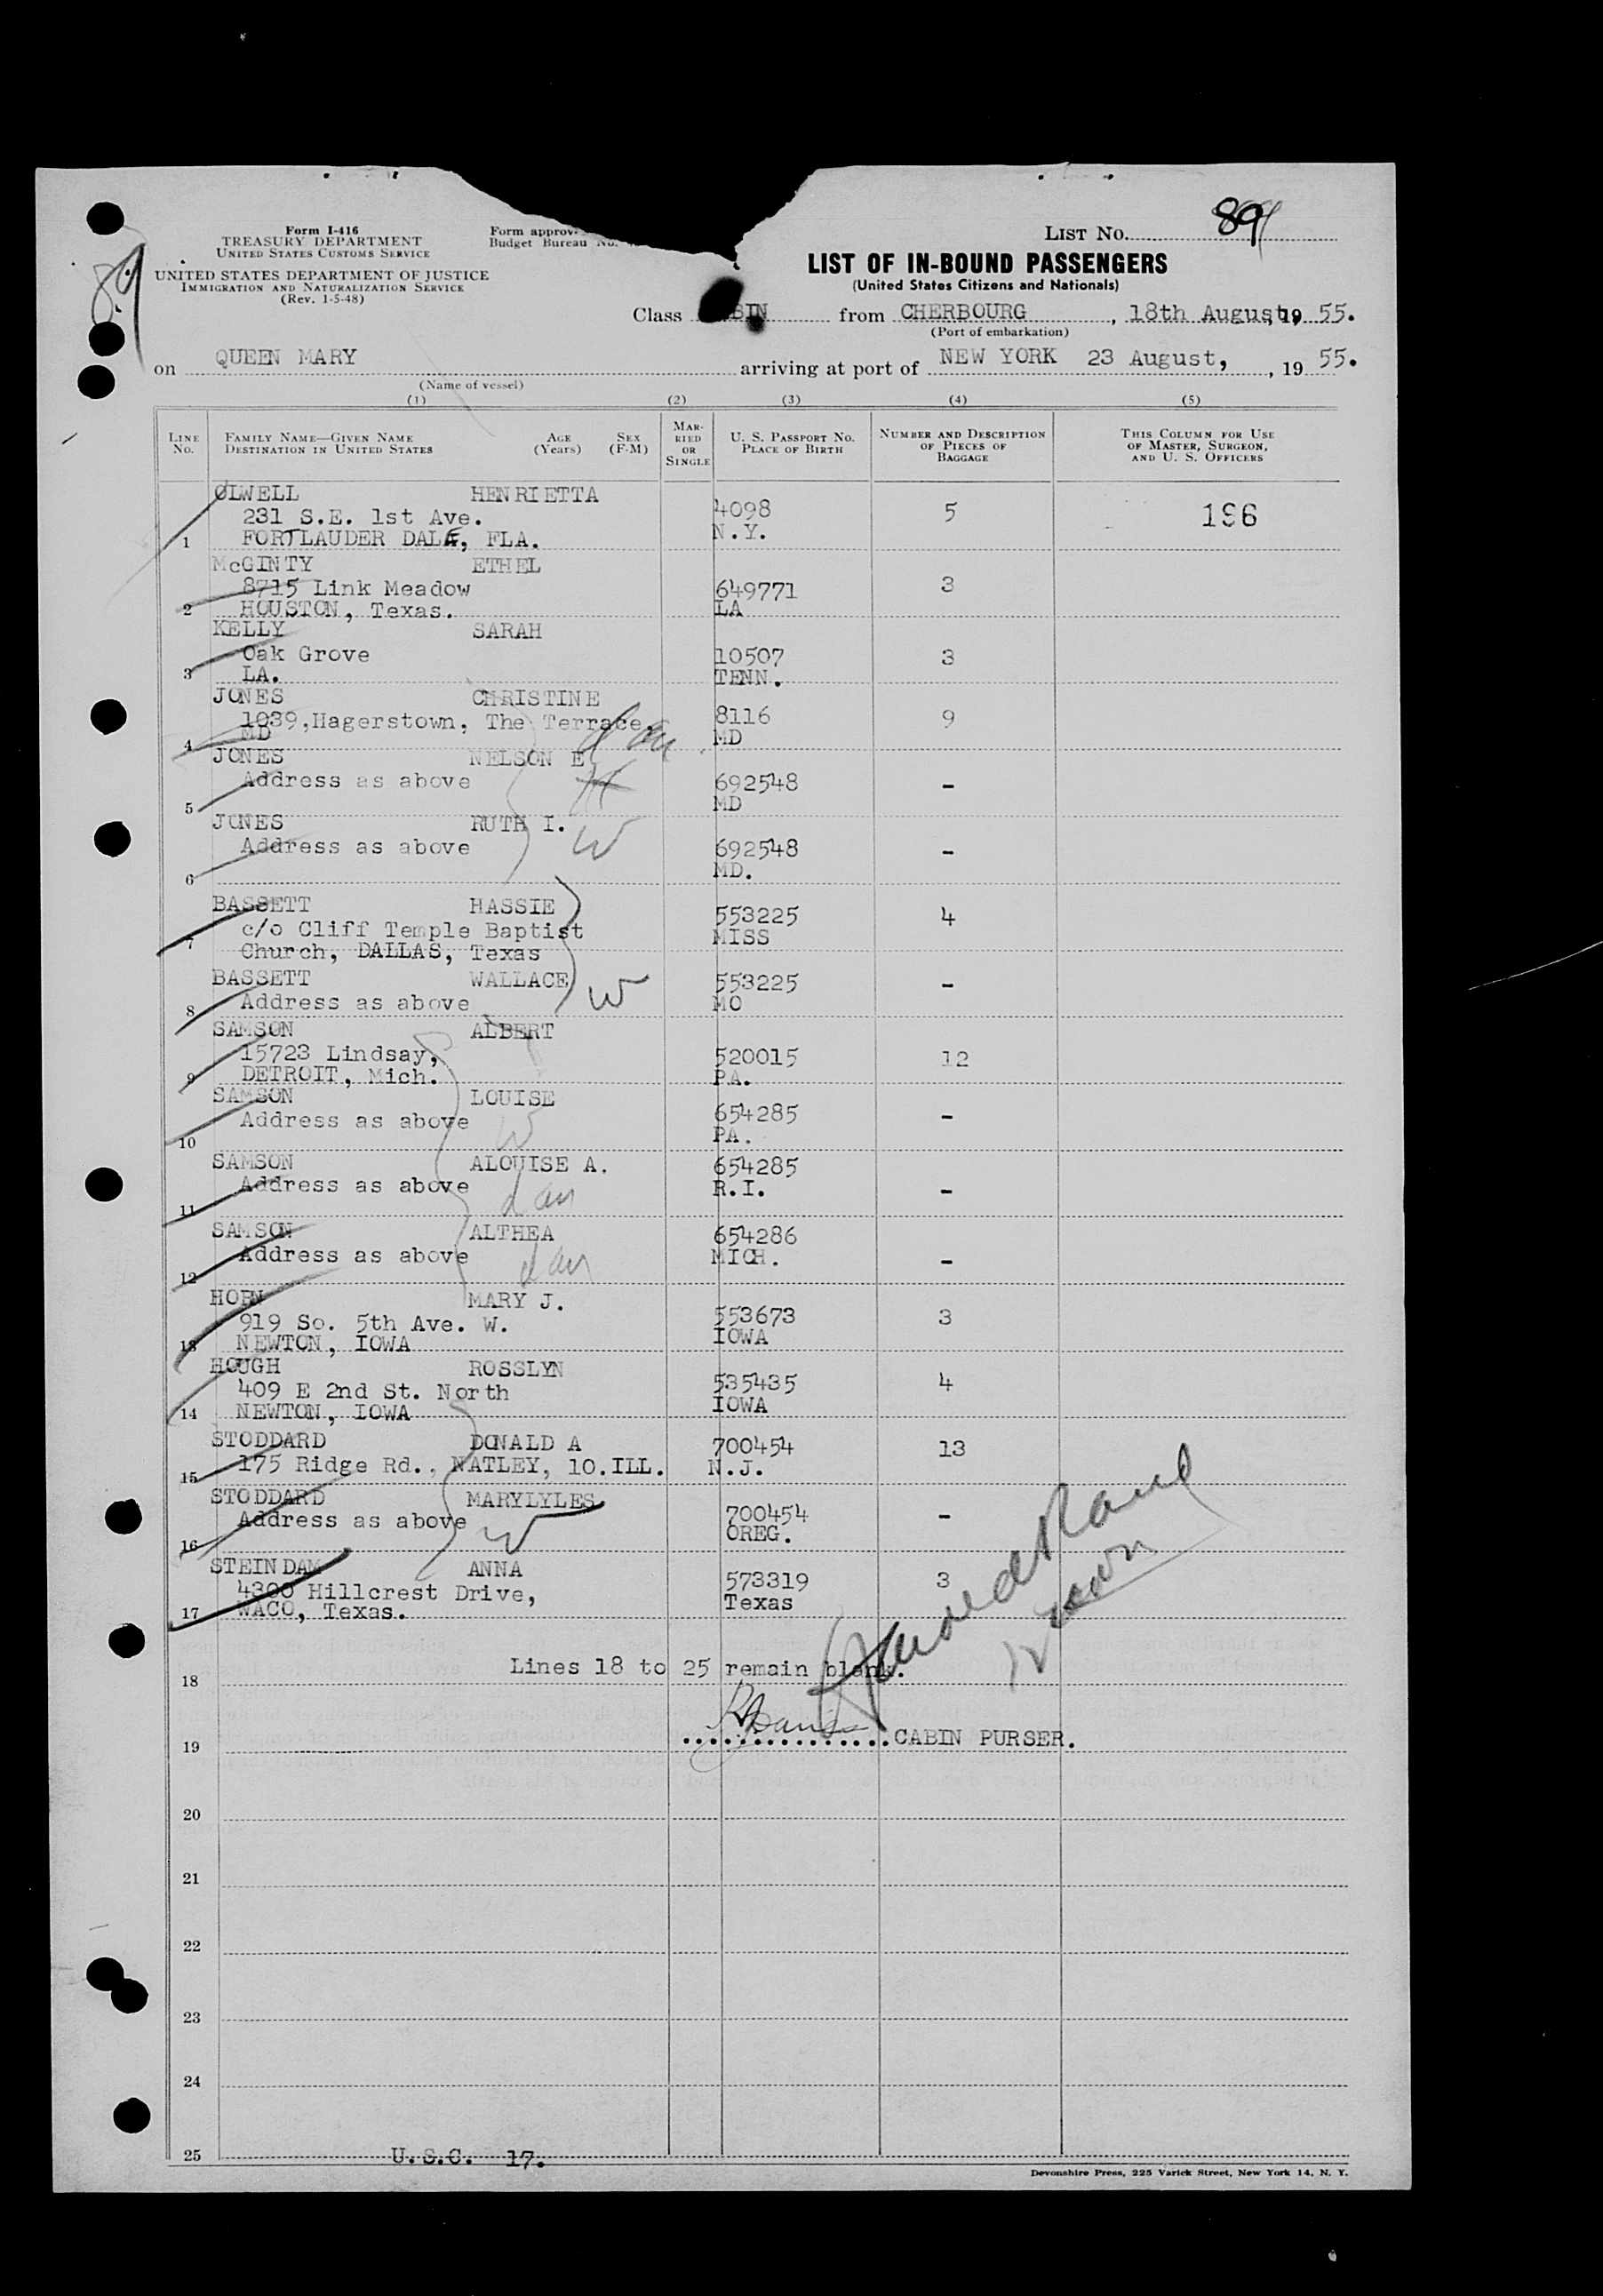 Form I-416
TREASURY DEPARTMENT
UNITED STATES CUSTOMS SERVICE
UNITED STATES DEPARTMENT OF JUSTICE
IMMIGRATION AND NATURALIZATION SERVICE
(Rev. 1-5-48)
Form approv
Budget Bureau No.
LIST NO. 89
LIST OF IN-BOUND PASSENGERS
(United States Citizens and Nationals)
89
Class BIN from CHERBOURG, 18th August, 19 55.
(Port of embarkation)
on QUEEN MARY arriving at port of NEW YORK 23 August, , 19 55.
(Name of vessel)
(1) (2) (3) (4) (5)
LINE NO. FAMILY NAME—GIVEN NAME DESTINATION IN UNITED STATES AGE (Years) SEX (F-M) MARRIED OR SINGLE U. S. PASSPORT NO. PLACE OF BIRTH NUMBER AND DESCRIPTION OF PIECES OF BAGGAGE THIS COLUMN FOR USE OF MASTER, SURGEON, AND U. S. OFFICERS
OLWELL HENRIETTA
231 S.E. 1st Ave. 4098 5 196
1 FORTLAUDER DALE, FLA. N.Y.
McGINTY ETHEL
8715 Link Meadow 649771 3
2 HOUSTON, Texas. LA
KELLY SARAH
Oak Grove 10507 3
3 LA. TENN.
JONES CHRISTINE
1039,Hagerstown, The Terrace, 8116 9
4 MD MD
dau.
JONES NELSON E
Address as above 692548 -
5 MD
H
JONES RUTH I.
Address as above W 692548 -
6 MD.
BASSETT HASSIE
c/o Cliff Temple Baptist 553225 4
7 Church, DALLAS, Texas MISS
BASSETT WALLACE 553225 -
8 Address as above W MO
SAMSON ALBERT
15723 Lindsay, 520015 12
9 DETROIT, Mich. PA.
SAMSON LOUISE
Address as above W 654285 -
10 PA.
SAMSON ALOUISE A. 654285
Address as above dau R.I. -
11
SAMSON ALTHEA 654286
Address as above dau MICH. -
12
HORN MARY J.
919 So. 5th Ave. W. 553673 3
13 NEWTON, IOWA IOWA
HOUGH ROSSLYN
409 E 2nd St. North 535435 4
14 NEWTON, IOWA IOWA
STODDARD DONALD A 700454 13
15 175 Ridge Rd., NATLEY, 10.ILL. N.J.
STODDARD MARYLYLES
Address as above W 700454 -
16 OREG.
STEINDAM ANNA
4300 Hillcrest Drive, 573319 3
17 WACO, Texas. Texas
18 Lines 18 to 25 remain blank.
19 CABIN PURSER.
20
21
22
23
24
25 U.S.C. 17.
Devonshire Press, 225 Varick Street, New York 14, N. Y.